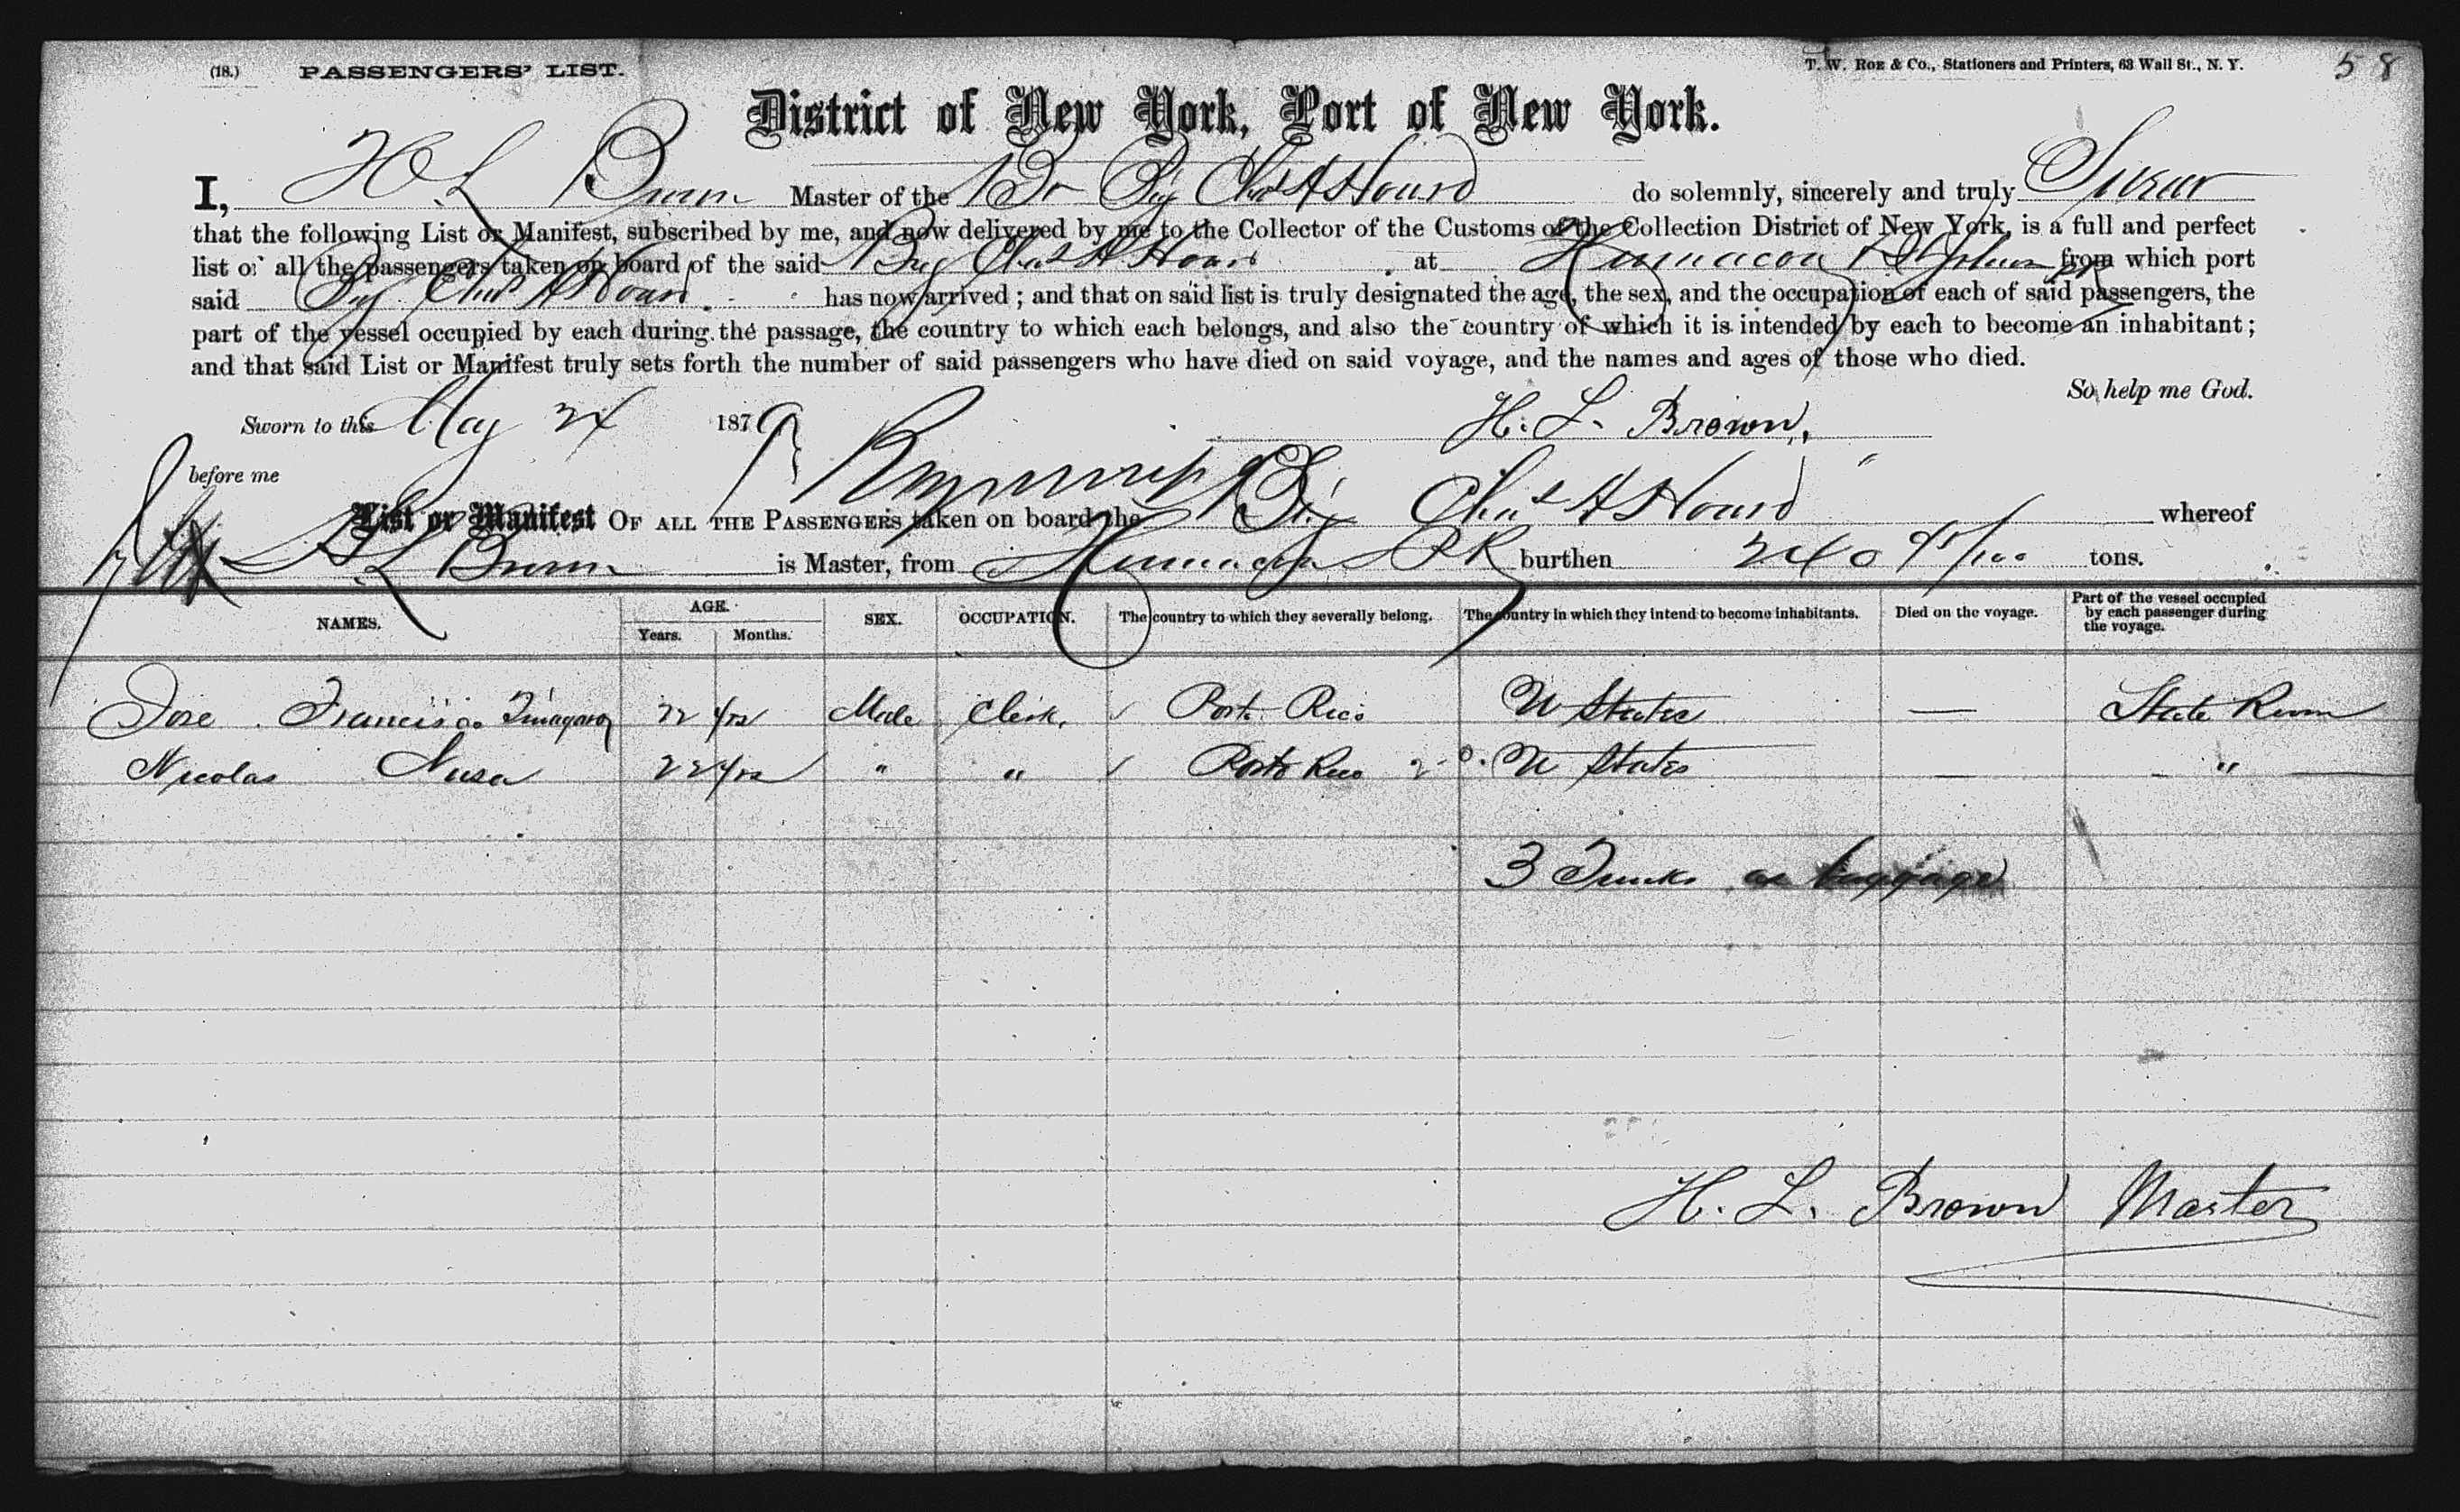 (18.) PASSENGERS' LIST.
T. W. Roe & Co., Stationers and Printers, 63 Wall St., N. Y.
58
District of New York, Port of New York.
I, H L Brown Master of the Br Brig Chas A Hoard do solemnly, sincerely and truly Swear
that the following List or Manifest, subscribed by me, and now delivered by me to the Collector of the Customs of the Collection District of New York, is a full and perfect
list of all the passengers taken on board of the said Brig Chas A Hoard at Humacoa from which port
said Brig Chas A Hoard has now arrived ; and that on said list is truly designated the age, the sex, and the occupation of each of said passengers, the
part of the vessel occupied by each during the passage, the country to which each belongs, and also the country of which it is intended by each to become an inhabitant ;
and that said List or Manifest truly sets forth the number of said passengers who have died on said voyage, and the names and ages of those who died.
So help me God.
Sworn to this May 24 1879
H. L. Brown,
before me
List or Manifest OF ALL THE PASSENGERS taken on board the Brig Chas A Hoard whereof
H L Brown is Master, from Humacoa PR burthen 240 95/100 tons.
NAMES. AGE. Years. Months. SEX. OCCUPATION. The country to which they severally belong. The country in which they intend to become inhabitants. Died on the voyage. Part of the vessel occupied by each passenger during the voyage.
Jose Francisco 22 yrs Male Clerk, Porto Rico U States — State Room
Nicolas Nusa 22 yrs " " Porto Rico U States — "
3 Trunks as baggage
H. L. Brown Master